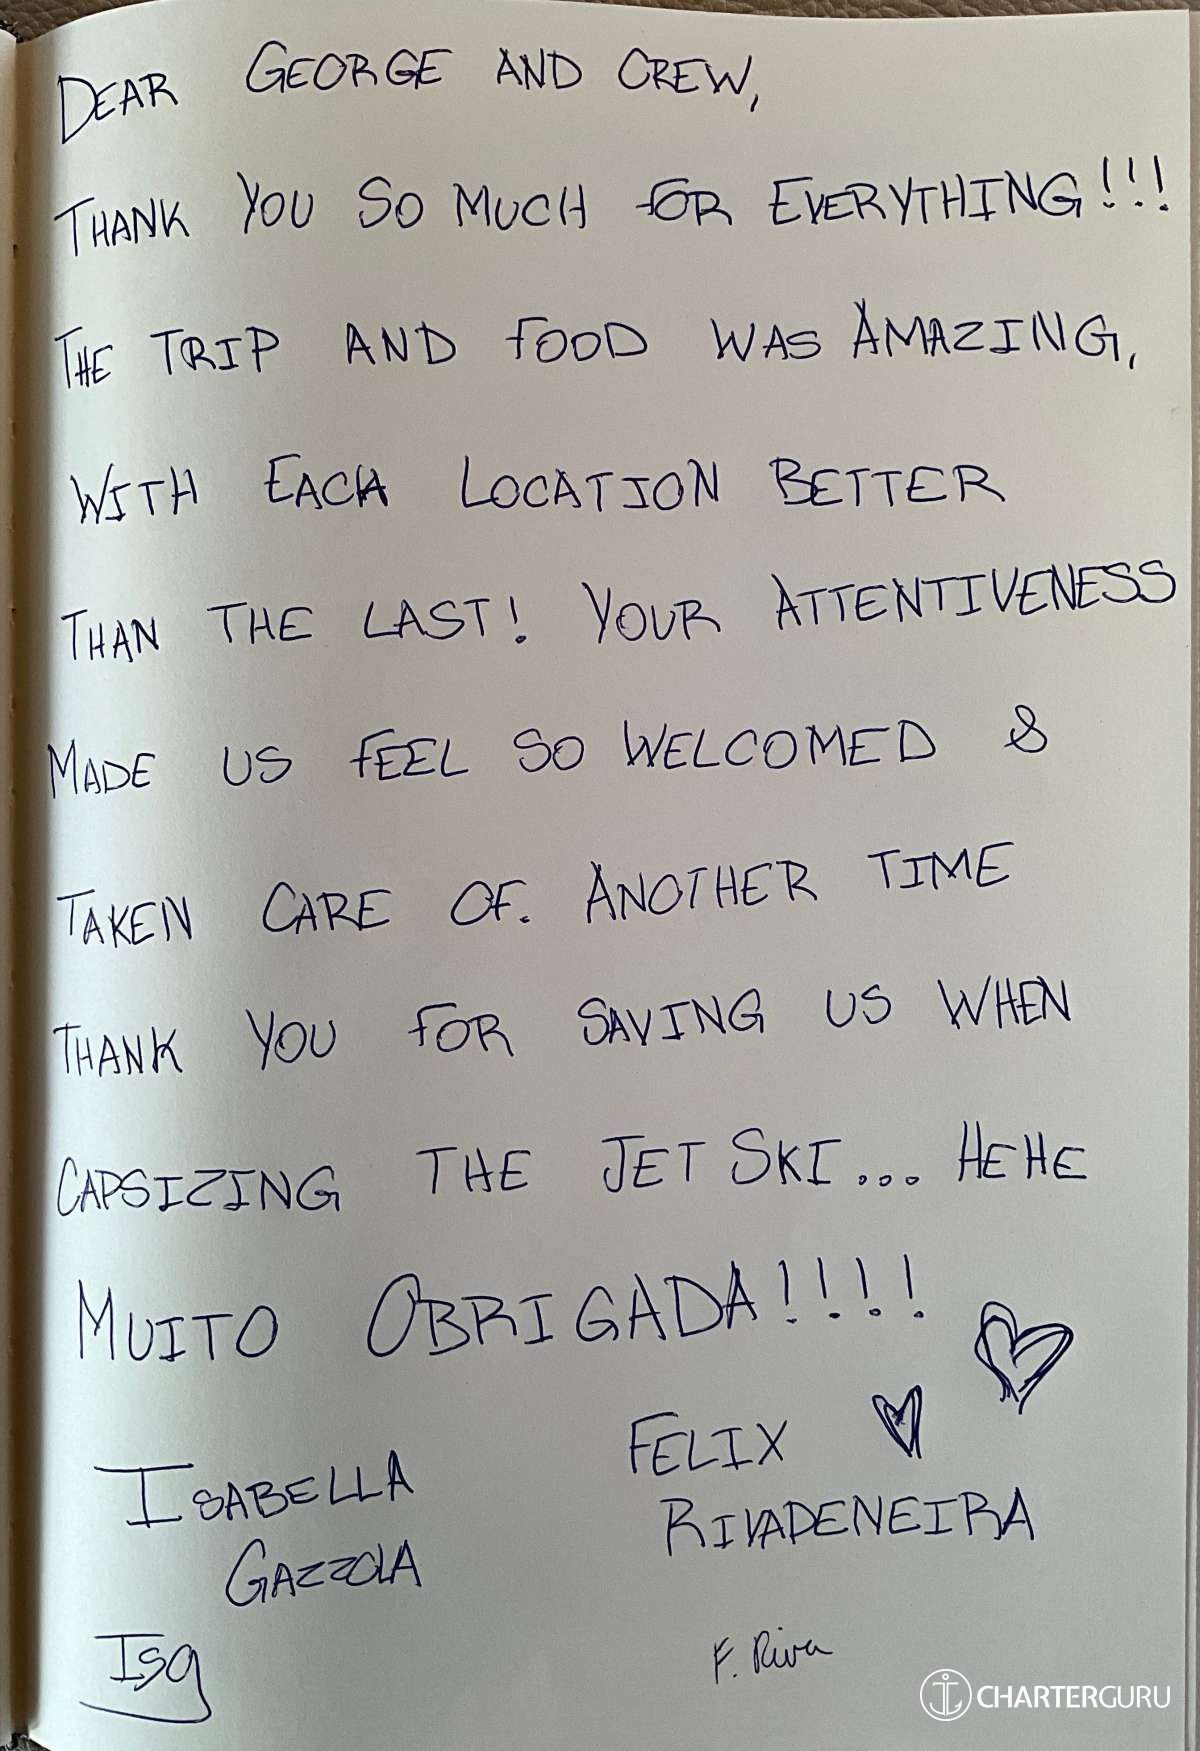 DEAR GEORGE AND CREW,
THANK YOU SO MUCH FOR EVERYTHING!!!
THE TRIP AND FOOD WAS AMAZING,
WITH EACH LOCATION BETTER
THAN THE LAST! YOUR ATTENTIVENESS
MADE US FEEL SO WELCOMED &
TAKEN CARE OF. ANOTHER TIME
THANK YOU FOR SAVING US WHEN
CAPSIZING THE JET SKI... HEHE
MUITO OBRIGADA!!!!
ISABELLA
GAZZOLA
Isg
FELIX
RIVADENEIRA
F. Riva
CHARTERGURU